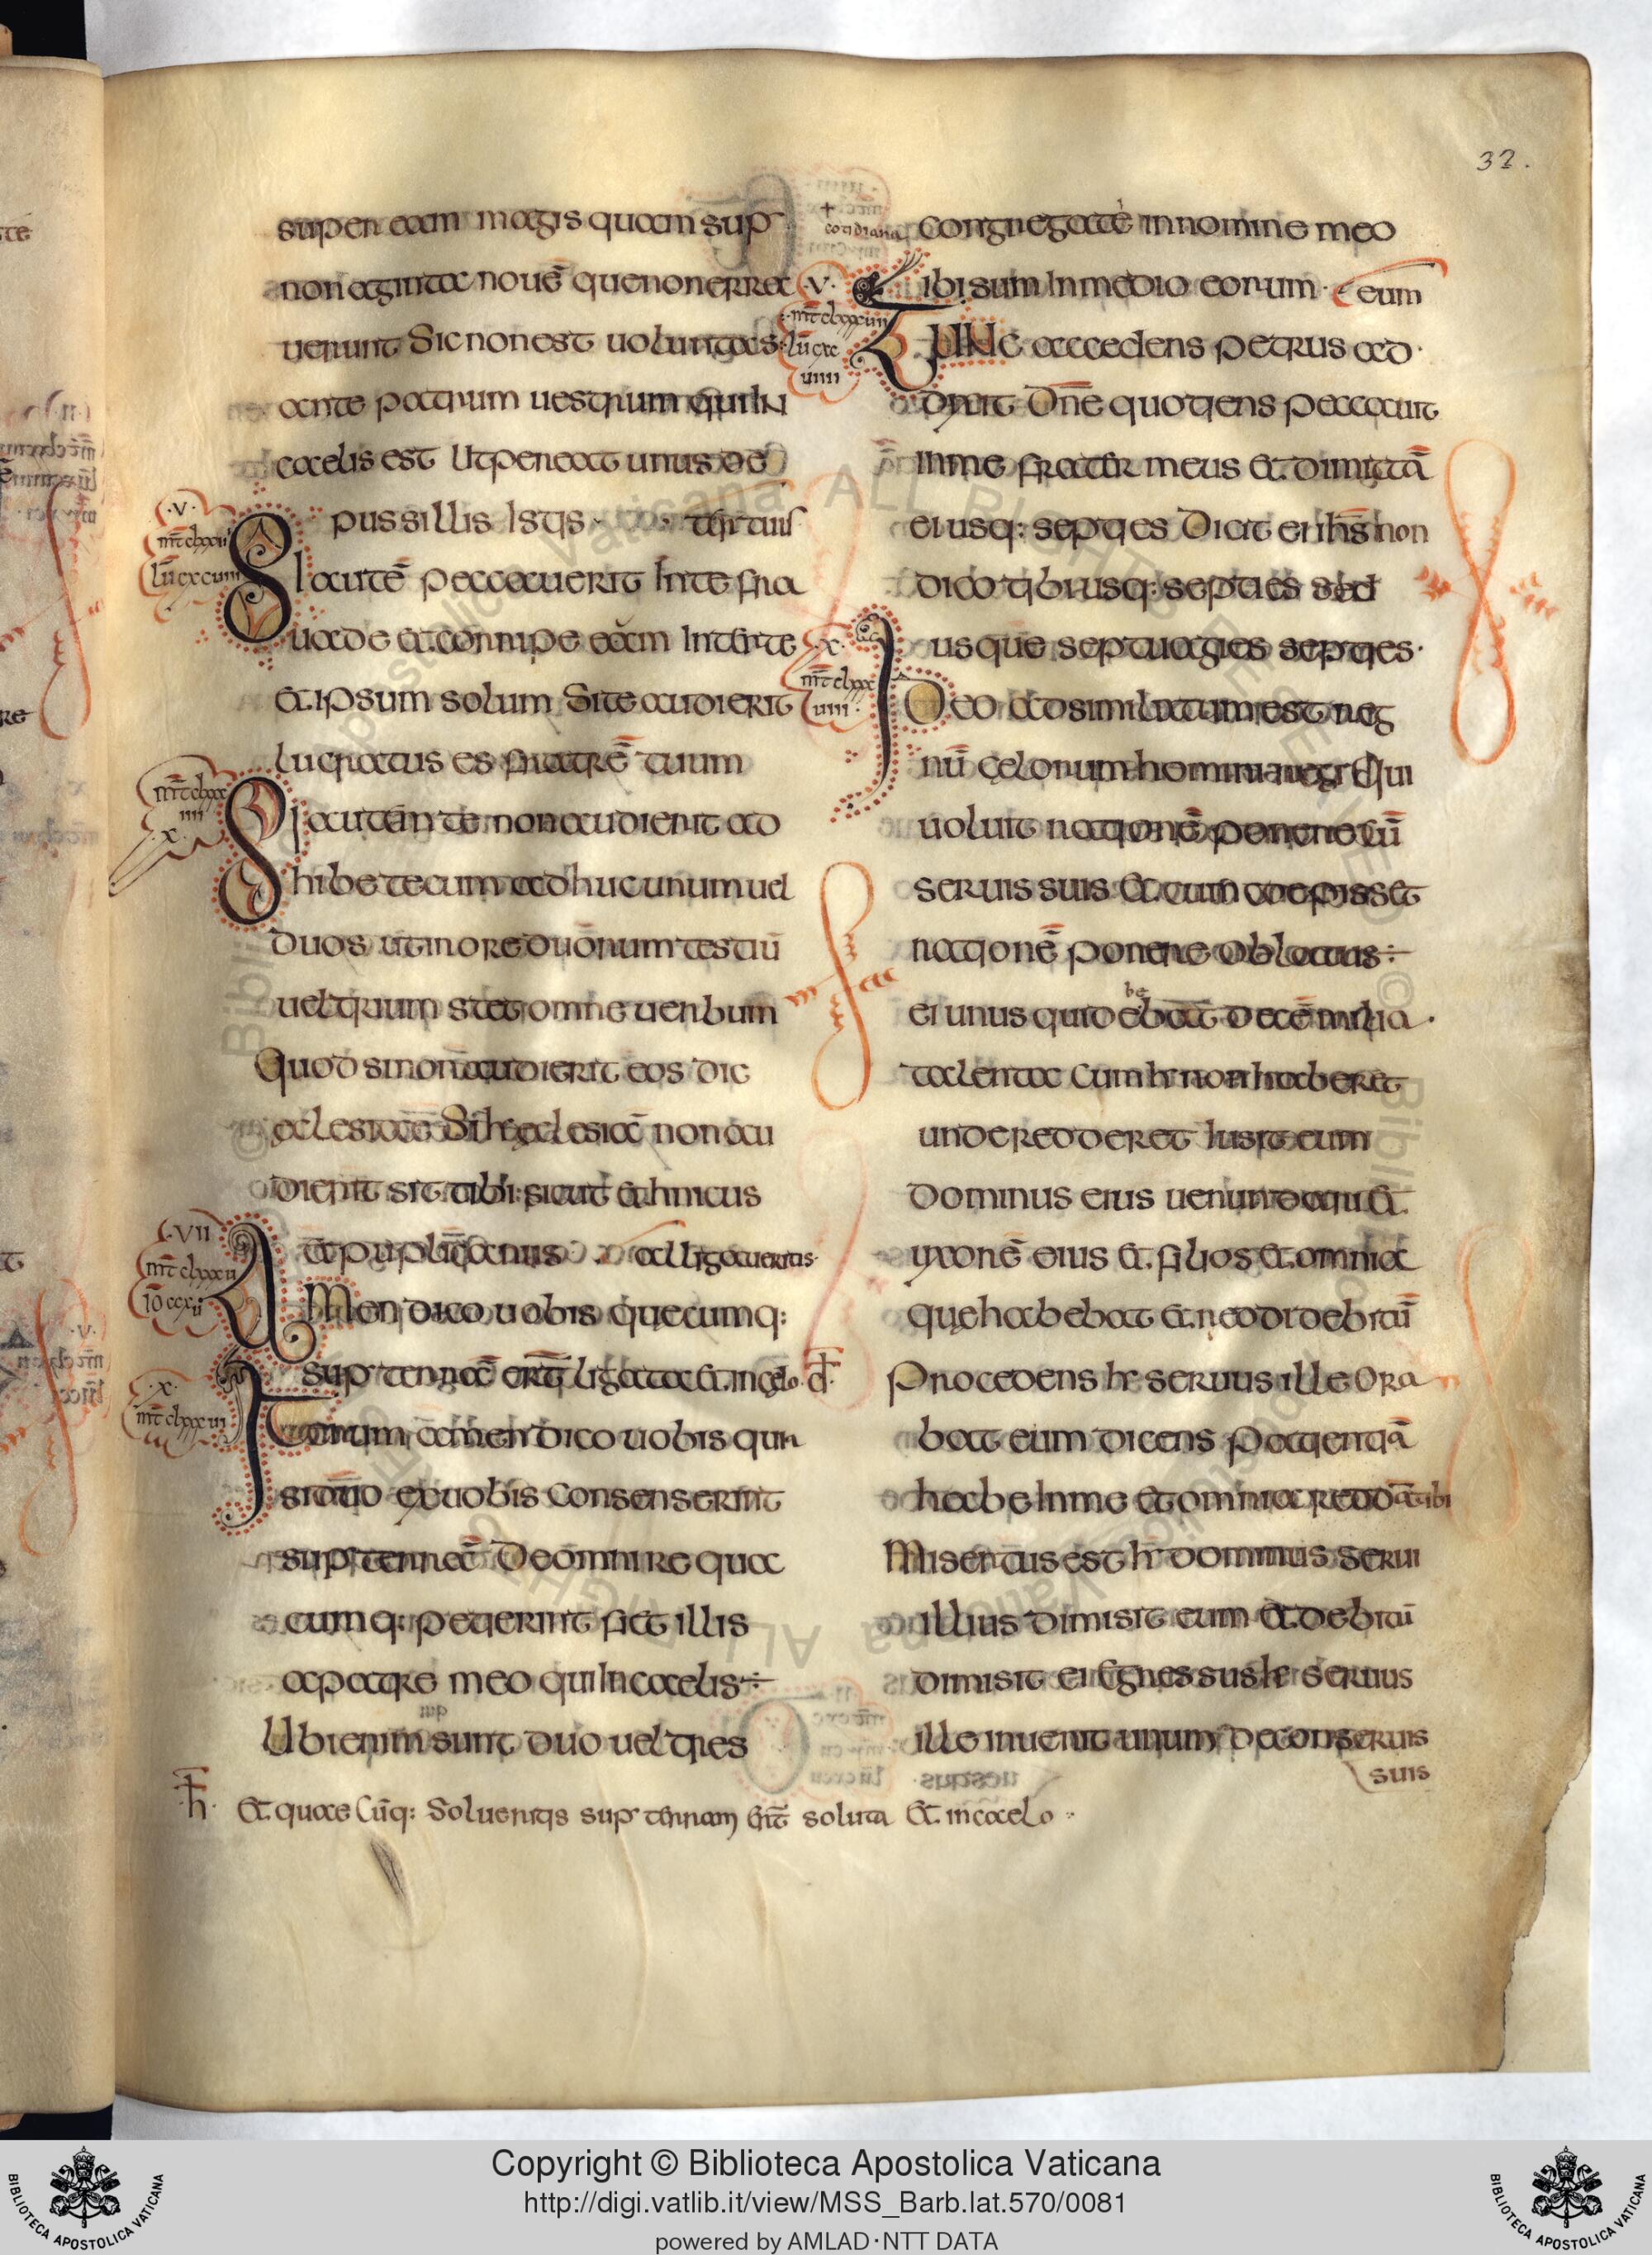 32.
super eam magis quam sup
nonaginta nouē que non erra
uerunt Sic non est uoluntas
ante patrum uestrum qui IN
caelis est Ut pereat unus de
pussillis Istis
Si autē peccauerit In te fra
uade et corripe eam Inter te
et ipsum solum Si te audierit
lucratus es fratrē tuum
Si autem te non audierit ad
hibe tecum adhuc unum uel
duos ut in ore duorum testiū
uel trium stet omne uerbum
Quod si non audierit eos dic
eclesiae Si h eclesiā non au
dierit sit tibi sicut et hnicus
et puplicanus alligaueritis
Amen dico uobis quecumq:
sup terrā erit ligata et in celo
Iterum amen dico uobis quia
si duo ex uobis consenserint
sup terrā De omni re qua
cumq: petierint fiet illis
a patre meo qui In caelis
Ubi enim sunt duo uel tres
h Et quae Cūq: Solueritis sup terram erit soluta et in caelo
cotidiana
congregate in nomine meo
ibi sum In medio eorum eum
TUNC accedens petrus ad
dixit Dne quotiens peccauit
in me frater meus et dimittā
ei usq: septies Dicit ei ihs non
dico tibi usq: septies sed
usque septuagies septies
Ideo adsimilatum est reg
nū celorum homini regi Qui
uoluit rationē ponere cū
seruis suis et cum coepisset
rationē ponere oblatus
ei unus qui debebat decē milia
talenta Cum h non haberet
unde redderet Iusit eum
dominus eius uenundari et
uxorē eius et filios et omnia
que habebat et reddi debitū
d Procedens h seruus ille Ora
bat eum dicens Patientiā
habe In me et omnia reddā tibi
Misertus est h dominus serui
illius dimisit eum et debitū
dimisit ei Egressus h seruus
ille inuenit unum De conseruis
suis
Copyright © Biblioteca Apostolica Vaticana
http://digi.vatlib.it/view/MSS_Barb.lat.570/0081
powered by AMLAD·NTT DATA